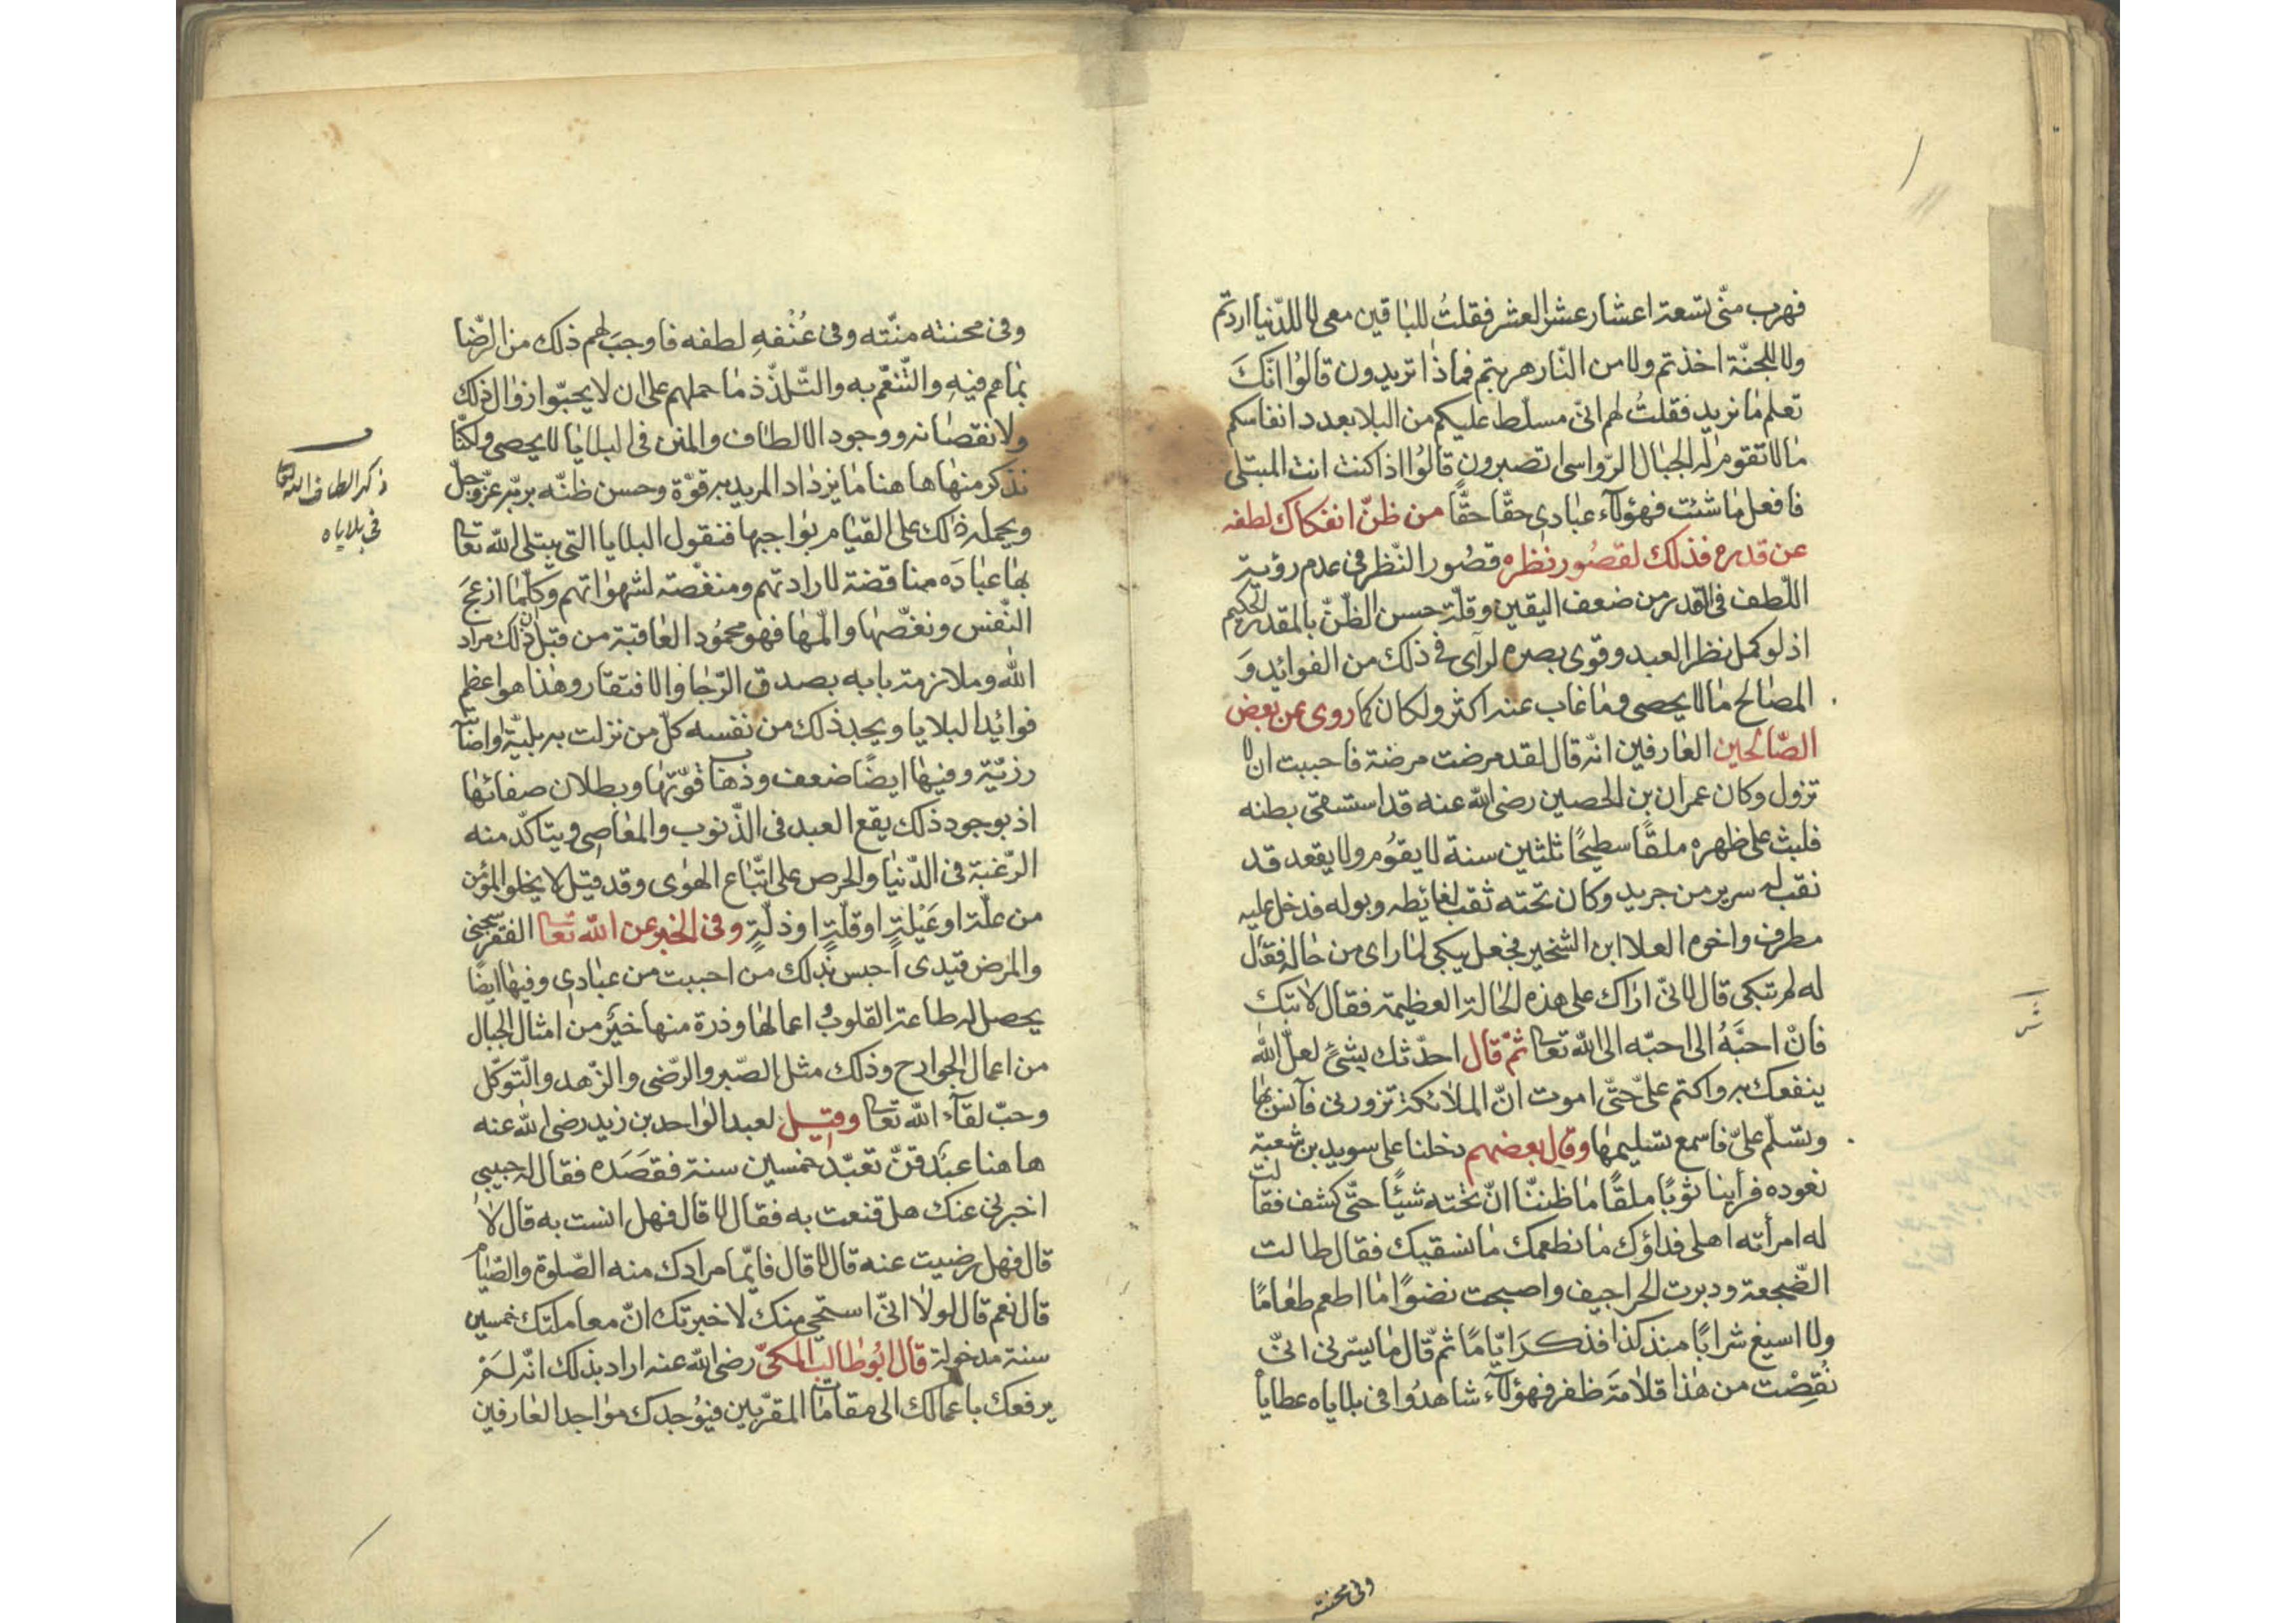 فهرب منّى تسعة اعشار عشر العشر فقلتُ للباقين معى لا للدّنيا اردتم
ولا للجنّة اخذتم ولا من النّار هربتم فماذا تريدون قالُوا انّكَ
تعلم مٰا نريد فقلتُ لهم انّى مسلّط عليكم من البلا بعدد انفاسكم
مٰا لا تقوم له الجبٰال الرّواسى اتصبرون قالُوا اذا كنت انت المبتلى
فافعل مٰا شئت فهؤلآء عبٰادى حقّا حقًّا من ظنّ انفكاك لطفه
عن قدره فذلك لقصُور نظره قصُور النّظر فى عدم رؤية
اللّطف فى القدر من ضعف اليقين وقلّة حسن الظّنّ بالمقدر الحكيم
اذ لو كمل نظر العبد وقوى بصره لرآى فى ذلك من الفوائد وَ
المصٰالح مٰا لا يحصى ومٰا غاب عنه اكثر ولكان كما روى عن بعض
الصّالحين العٰارفين انّه قال لقد مرضت مرضة فاحببت ان لا
تزول وكان عمران بن الحصين رضى الله عنه قد استسقى بطنه
فلبث على ظهره ملقًا سطيحًا ثلثين سنة لا يقوُم ولا يقعد قد
نقب له سرير من جريد وكان تحته ثقب لغائطه وبوله فدخل عليه
مطرف واخوه العلا ابن الشخير فجعل يبكى لمٰا راى من حٰاله فقال
له لم تبكى قال لانّى ارٰاك على هذه الحٰالة العظيمة فقال لا تبك
فانّ احبَّهُ الى احبّه الى الله تعٰا ثمّ قٰال احدّثك بشئٍ لعلّ الله
ينفعك به واكتم علىّ حتّى اموت انّ الملائكة تزورنى فآنس بهٰا
وتسلّم علىّ فاسمع تسليمهٰا وقال بعضهم دخلنا على سويد بن شعبة
نعوده فرأينا ثوبًا ملقًا مٰا ظننّا انّ تحته شيئًا حتّى كشف فقالت
له امرأته اهلى فداؤك مٰا نطعمك مٰا نسقيك فقال طالت
الضّجعة ودبرت الحراجيف واصبحت نضوًا مٰا اطعم طعٰامًا
ولا اسيغ شرابًا منذ كذا فذكرَ ايّامًا ثمّ قال مٰا يسّرنى انّى
نُقِصْت من هٰذا قلامَة ظفر فهؤلآء شاهدُوا فى بلاياه عطايٰا
وفى محنته
وفى محنته منّته وفى عُنْفهِ لطفه فاوجب لهم ذلك من الرّضا
بمٰا هم فيهِ والتّنعّم به والتّلذّذ مٰا حملهم على ان لا يحبّوا زوٰال ذلك
ولا نقصٰانه ووجود الالطٰاف والمنن فى البلايٰا لا يحصى ولكنّا
نذكر منهٰا هٰا هنا مٰا يزدٰاد المريد به قوّة وحسن ظنّه بربّه عزّ وجلّ
ويحمله ذلك على القيٰام بوٰاجبها فنقول البلايا التى يبتلى الله تعٰا
بهٰا عبٰادَه مناقضة لارادتهم ومنغّصة لشهوٰاتهم وكلّمٰا ازعجَ
النّفس ونغّصهٰا والمّهٰا فهو محمُود العٰاقبة من قبل انّ ذلك مراد
الله وملازمة بابه بصدق الرّجٰا والافتقار وهٰذا هو اعظم
فوائد البلايا ويجد ذلك من نفسه كلّ من نزلت به بليّة واصٰابته
رزيّة وفيهٰا ايضًا ضعف وذهٰاب قوّتهٰا وبطلان صفاتهٰا
اذ بوجود ذلك يقع العبد فى الذّنوب والمعٰاصى ويتاكّد منه
الرّغبة فى الدّنيٰا والحرص على اتّبٰاع الهوٰى وقد قيل لا يخلو المؤمن
من علّة او عَيْلةٍ او قلّةٍ او ذلّةٍ وفى الخبر عن الله تعٰا الفقر سجنى
والمرض قيدى احبس بذلك من احببت من عبٰادى وفيهٰا ايضًا
يحصل له طاعة القلوب واعمالهٰا وذرة منها خيرٌ من امثال الجبال
من اعمال الجوارح وذلك مثل الصّبر والرّضى والزّهد والتّوكّل
وحبّ لقآء الله تعٰا وقيل لعبد الوٰاحد بن زيد رضى الله عنه
هاهنا عبَد قد تعبّد خمسين سنة فقصَدَه فقال له حبيبى
اخبرنى عنك هل قنعت به فقال لا قال فهل انست به قال لا
قال فهل رضيت عنه قال لا قال فانّما مرادك منه الصّلوة والصّيٰام
قال نعم قال لولا انّى استحيى منك لاخبرتك انّ معاملتك خمسين
سنة مدخولة قال ابُو طٰالب المكىّ رضى الله عنه اراد بذلك انّه لم
يرفعك باعمالك الى مقامٰات المقرّبين فيُوجدك موٰاجد العٰارفين
ذكر الطاف الله تعا
فى بلاياه